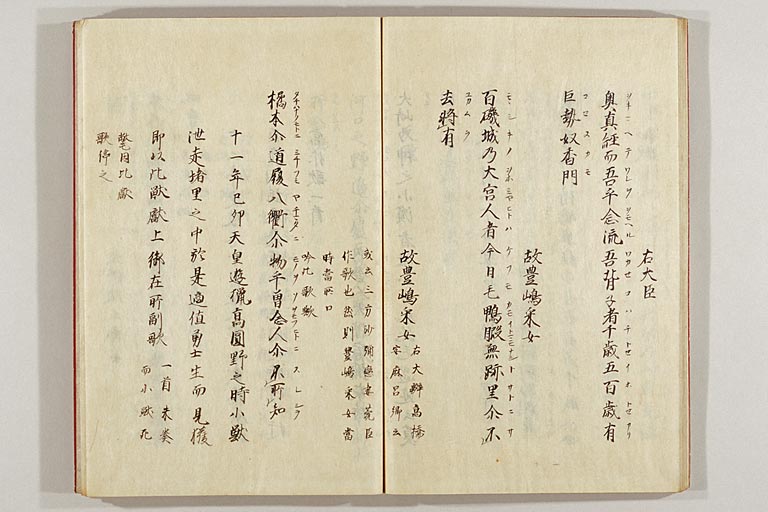 右大臣
奥真経而吾乎念流吾背子者千歳五百歳有
巨勢奴香門
故豊嶋采女
百礒城乃大宮人者今日毛鴨暇無跡里尓不
去將有
故豊嶋采女
右大辨高橋
安麻呂卿云
或云三方沙弥恋妻苑臣
作歌也然則豊嶋采女當
時當所口
吟此歌歟
橘本尓道履八衢尓物乎曽念人尓不所知
十一年己卯天皇遊獵高圓野之時小獣
泄走堵里之中於是適值勇士生而見獲
即以此獣獻上御在所副歌 一首 未奏
而小獣死
斃因此獻
歌停之